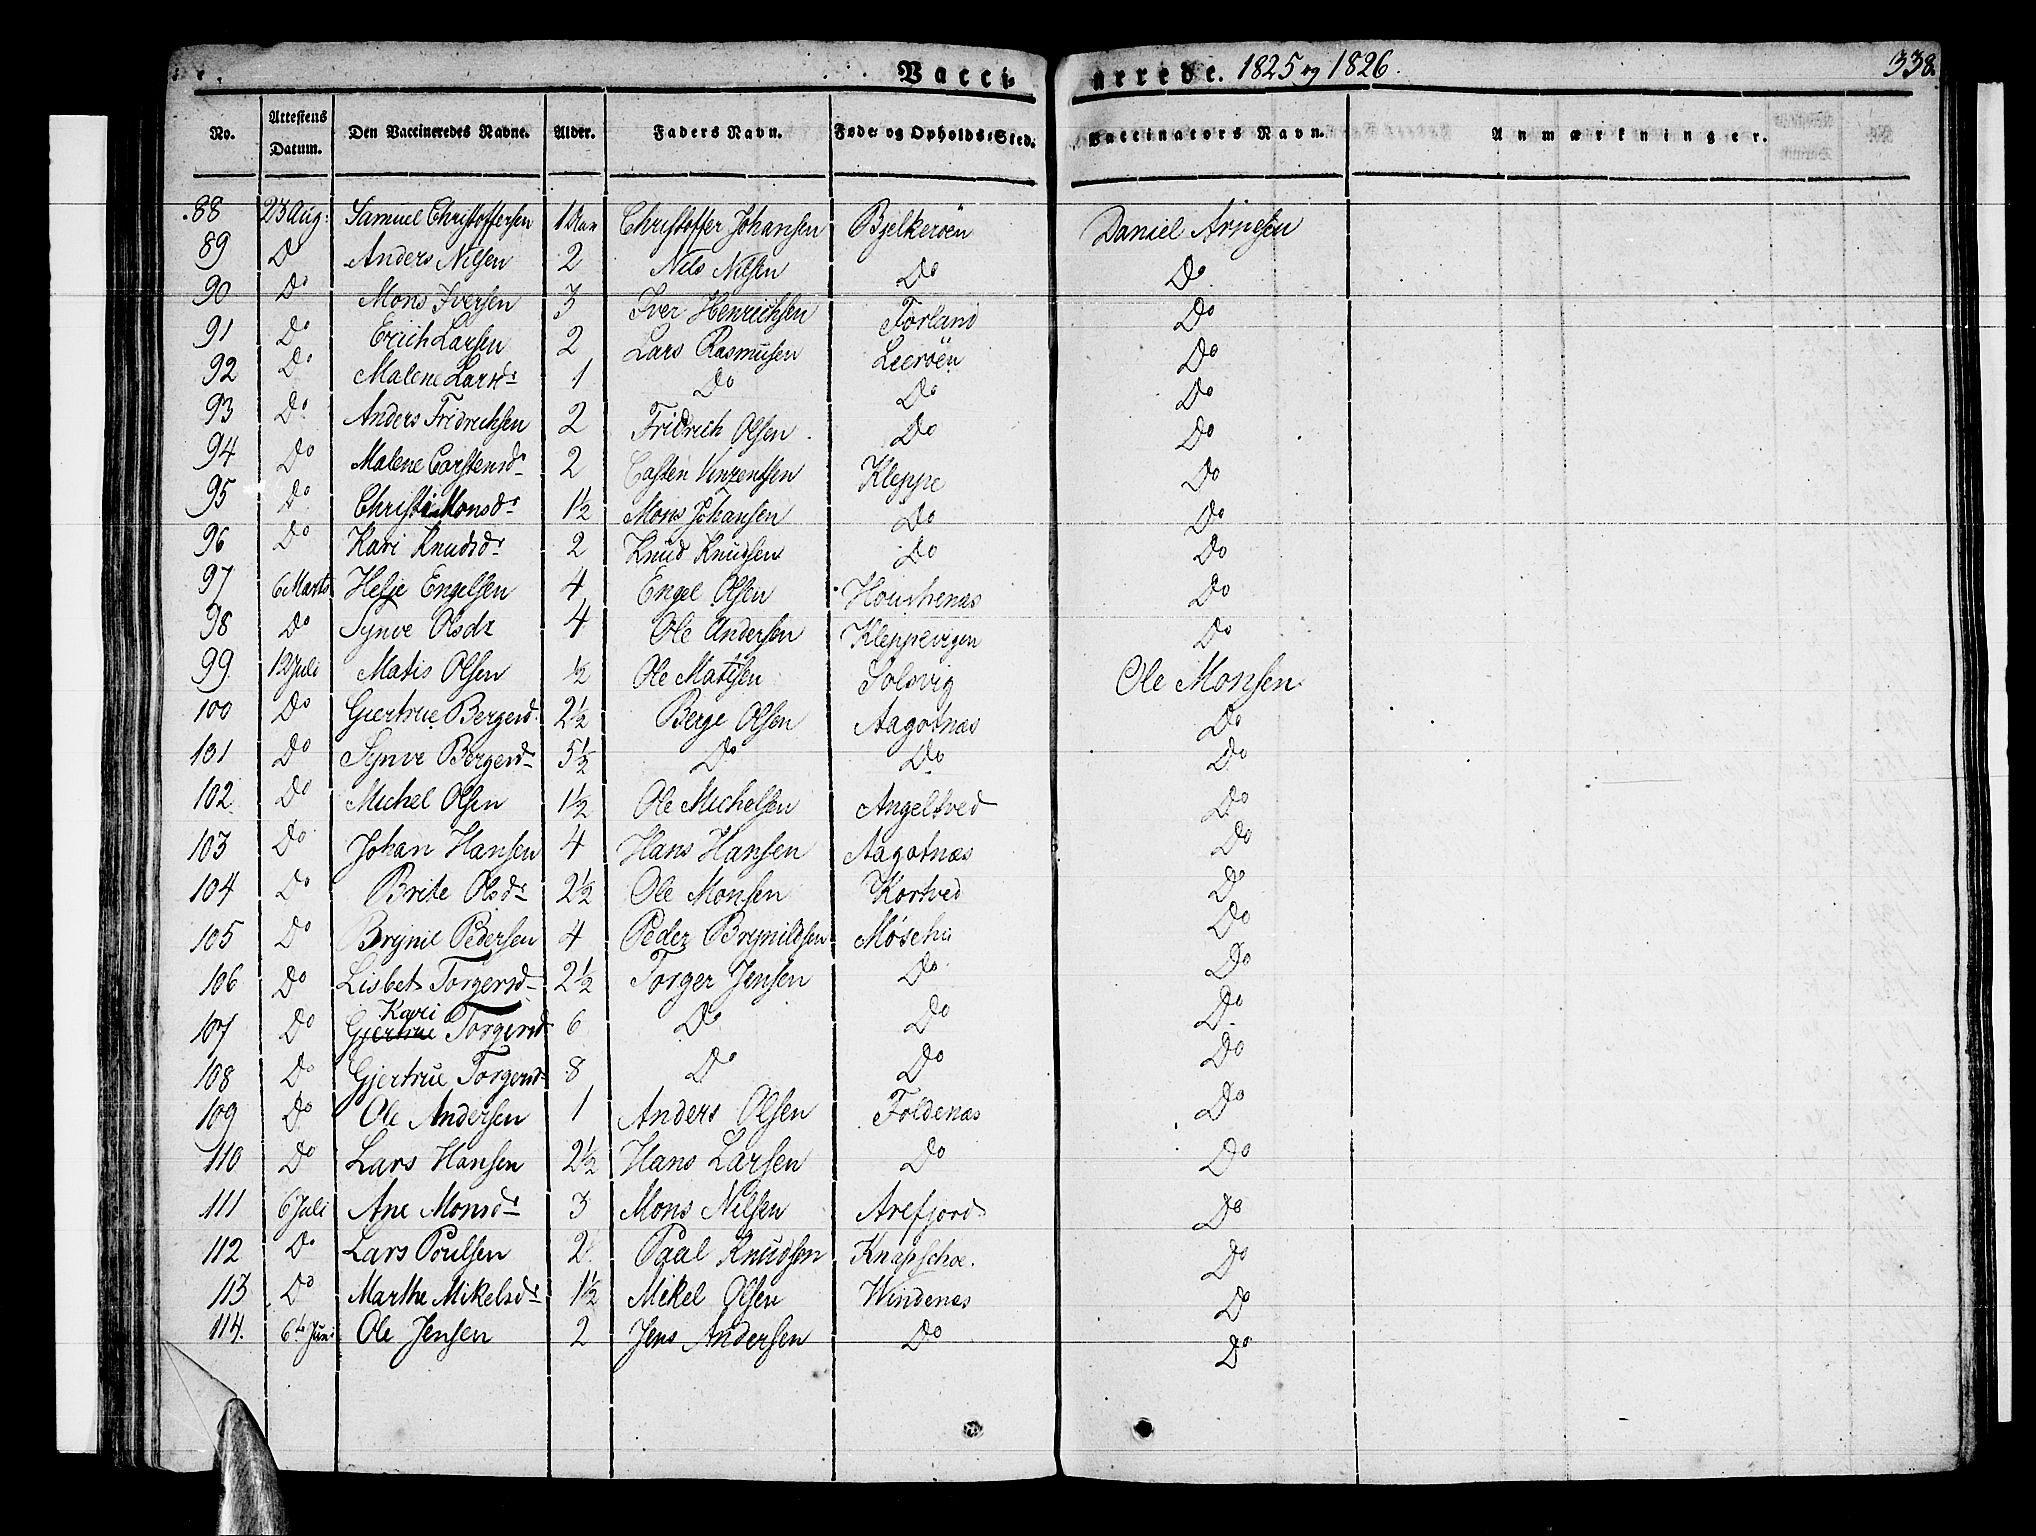 Vacci- nerede. 1825 og 1826. 338.
No. Attestens Datum. Den Vaccineredes Navne. Alder. Faders Navn. Føde- og Opholds-Sted. Vaccinators Navn. Anmærkninger.
88 23 Aug: Samuel Christoffersen 1 Aar Christoffer Johansen Bjelkeröen Daniel Arnesen
89 Do Anders Nilsen 2 Nils Nilsen Do Do
90 Do Mons Iversen 3 Iver Henrichsen Forland Do
91 Do Erich Larsen 2 Lars Rasmusen Leeröen Do
92 Do Malene Larsdr 1 Do Do Do
93 Do Anders Fridrichsen 2 Fridrich Olsen Do Do
94 Do Malene Carstensdr 2 Casten Vinzentsen Kleppe Do
95 Do Christi Monsdr 1½ Mons Johansen Do Do
96 Do Kari Knudsdr 2 Knud Knudsen Do Do
97 6 Marts Helje Engelsen 4 Engel Olsen Do
98 Do Synve Olsdr 4 Ole Andersen Kleppevigen Do
99 12 Juli Matis Olsen ½ Ole Matisen Solsvig Ole Monsen
100 Do Giertrue Bergersd. 2½ Berge Olsen Aagotnæs Do
101 Do Synve Bergersdr 5½ Do Do Do
102 Do Michel Olsen 1½ Ole Michelsen Angeltved Do
103 Do Johan Hansen 4 Hans Hansen Aagotnæs Do
104 Do Brite Olsdr 2½ Ole Monsen Kortved Do
105 Do Brynil Pedersen 4 Peder Brynildsen Do
106 Do Lisbet Torgersd 2½ Torger Jensen Do Do
Kari
107 Do Gjertrue Torgersd 6 Do Do Do
108 Do Gjertrue Torgersdr 8 Do Do Do
109 Do Ole Andersen 1 Anders Olsen Foldenæs Do
110 Do Lars Hansen 2½ Hans Larsen Do Do
111 6 Juli Ane Monsdr 3 Mons Nilsen Arefjord Do
112 Do Lars Poulsen 2 Paal Knudsen Knapschoe. Do
113 Do Marthe Mikelsdr 1½ Mikel Olsen Windenæs Do
114. 6te Juni Ole Jensen 2 Jens Andersen Do Do